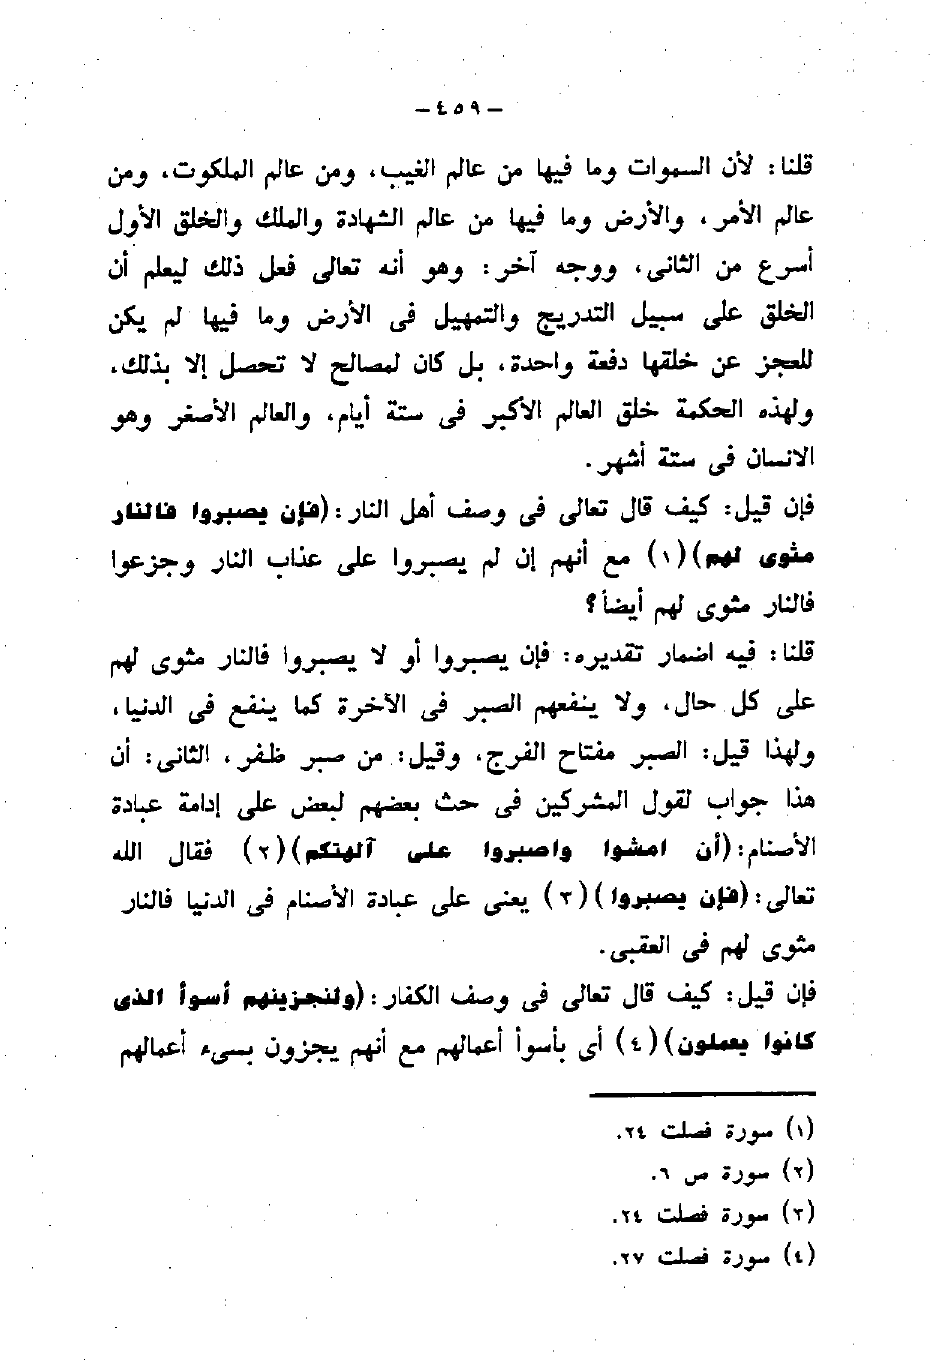 – ٤٥٩ –
قلنا: لأن السموات وما فيها من عالم الغيب، ومن عالم الملكوت، ومن
عالم الأمر، والأرض وما فيها من عالم الشهادة والملك والخلق الأول
أسرع من الثانى، ووجه آخر: وهو أنه تعالى فعل ذلك ليعلم أن
الخلق على سبيل التدريج والتمهيل فى الأرض وما فيها لم يكن
للعجز عن خلقها دفعة واحدة، بل كان لمصالح لا تحصل إلا بذلك،
ولهذه الحكمة خلق العالم الأكبر فى ستة أيام، والعالم الأصغر وهو
الانسان فى ستة أشهر.
فإن قيل: كيف قال تعالى فى وصف أهل النار: (فإن يصبروا فالنار
مثوى لهم) (١) مع أنهم إن لم يصبروا على عذاب النار وجزعوا
فالنار مثوى لهم أيضاً؟
قلنا: فيه اضمار تقديره: فإن يصبروا أو لا يصبروا فالنار مثوى لهم
على كل حال، ولا ينفعهم الصبر فى الآخرة كما ينفع فى الدنيا،
ولهذا قيل: الصبر مفتاح الفرج، وقيل: من صبر ظفر، الثانى: أن
هذا جواب لقول المشركين فى حث بعضهم لبعض على إدامة عبادة
الأصنام: (أن امشوا واصبروا على آلهتكم) (٢) فقال الله
تعالى: (فإن يصبروا) (٣) يعنى على عبادة الأصنام فى الدنيا فالنار
مثوى لهم فى العقبى.
فإن قيل: كيف قال تعالى فى وصف الكفار: (ولنجزينهم أسوأ الذى
كانوا يعملون) (٤) أى بأسوأ أعمالهم مع أنهم يجزون بسىء أعمالهم
(١) سورة فصلت ٢٤.
(٢) سورة ص ٦.
(٣) سورة فصلت ٢٤.
(٤) سورة فصلت ٢٧.